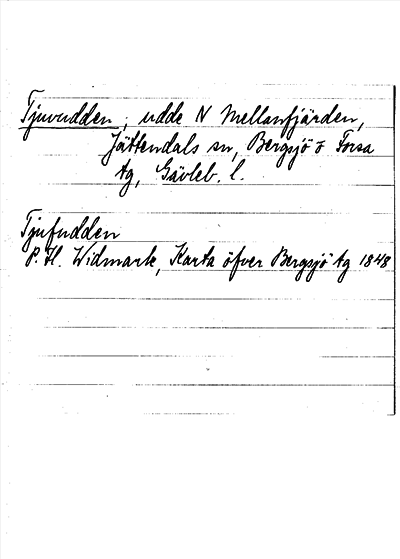 Tjuvudden, udde N Mellanfjärden,
Jättendals sn, Bergsjö o Forsa
tg, Gävleb. l.
Tjufudden
P. H. Widmark, Karta öfver Bergsjö tg 1848